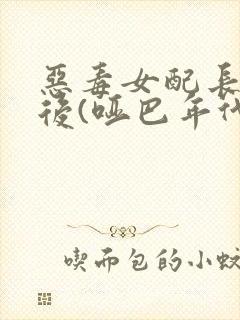 惡毒女配長
後(啞巴年代
喫而包的小蚊